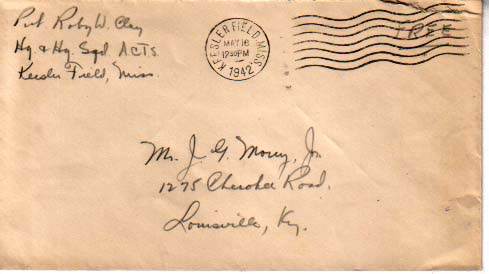 Pvt Roby W. Clay
Hq & Hq Sqd ACTS
Keesler Field, Miss.
KEESLER FIELD, MISS.
MAY 16
12 30 PM
1942
FREE
Mr. J. G. Jr.
1275 Cherokee Road.
Louisville, Ky.